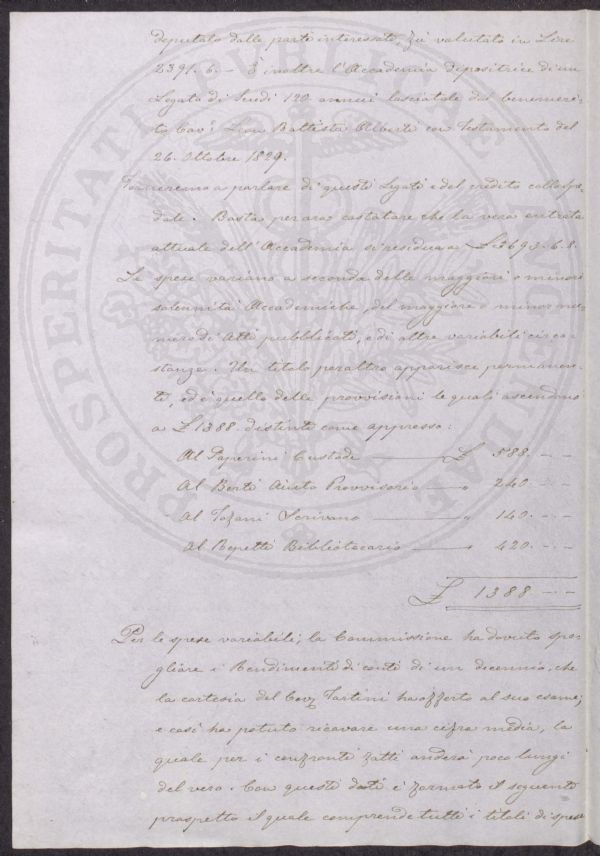 deputato dalle parti interessate, fu valutato in Lire
2391. 6. – È inoltre l'Accademia depositrice di un
Legato di Scudi 120 annui lasciatole dal benemeri-
to Cav.r Leon Battista Alberti con Testamento del
26. Ottobre 1829.
Torneremo a parlare di questi Legati e del credito collo Spe-
dale. Basta per ora costatare che la vera entrata
attuale dell'Accademia si residua a £ 3693. 6. 8.
Le spese variano a seconda delle maggiori o minori
solennità Accademiche, del maggiore o minor nu-
mero di Atti pubblicati, e di altre variabili circo-
stanze. Un titolo peraltro apparisce permanen-
te, ed è quello delle provvisioni le quali ascendono
a £ 1388 distinte come appresso:
Al Paperini Custode — £ 588. – –
Al Berti Aiuto Provvisorio — „ 240. – –
Al Tofani Scrivano — „ 140. – –
Al Repetti Bibliotecario — „ 420. – –
£ 1388 – –
Per le spese variabili, la Commissione ha dovuto spo-
gliare i Rendimenti di conti di un decennio, che
la cortesia del Cav Tartini ha offerto al suo esame;
e così ha potuto ricavare una cifra media, la
quale per i confronti fatti anderà poco lungi
del vero. Con questi dati è formato il seguente
prospetto il quale comprende tutti i titoli di spese
PROSPERITATI PUBLICAE AUGENDAE